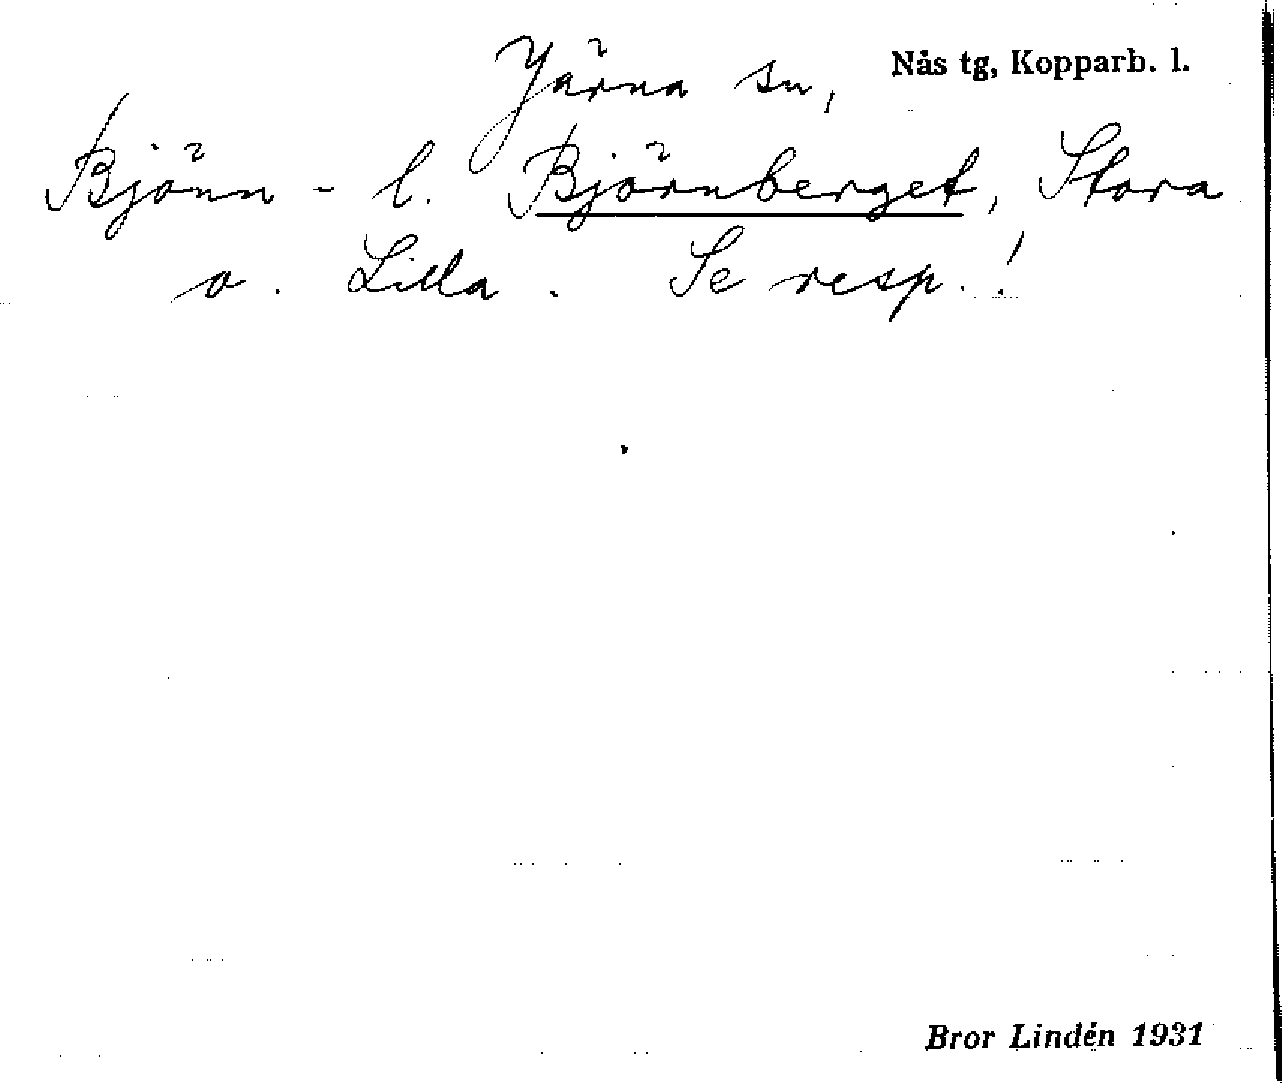 Järna sn, Nås tg, Kopparb. l.
Björn- l. Björnberget, Stora
o. Lilla. Se resp.!
Bror Lindén 1931